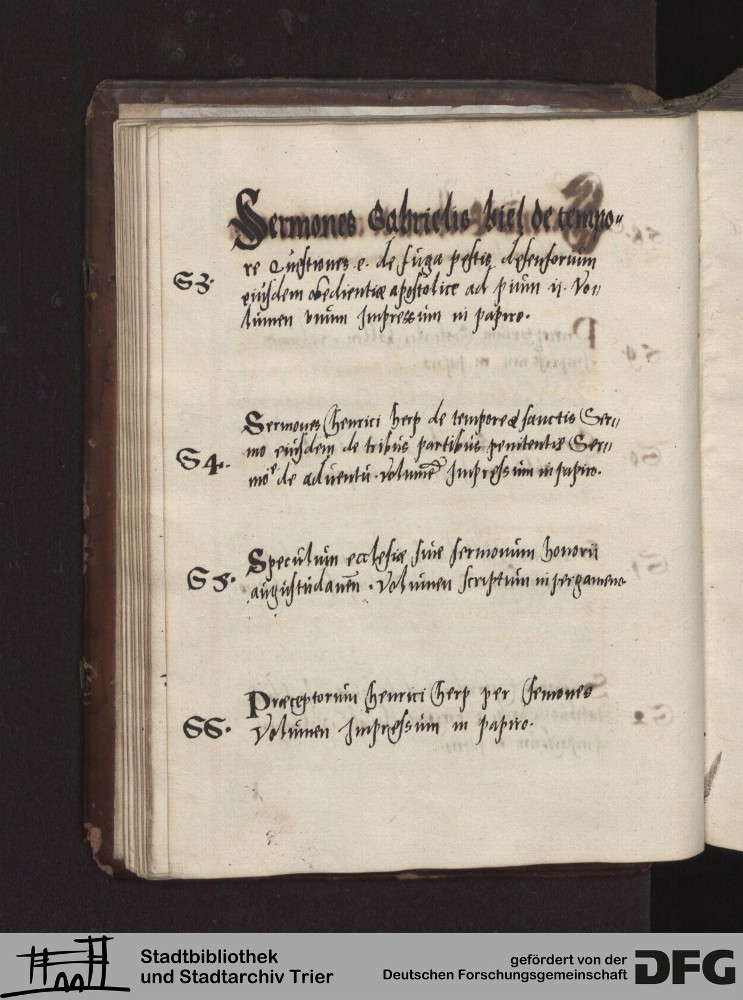 Sermones Gabrielis biel de tempo=
re Questiones e. de fuga pestis defensorium
S3.
eiusdem obedientiæ apostolice ad pium ij. Vo=
lumen unum Impressum in papiro.
Sermones Henrici Herp de tempore & sanctis Ser=
mo eiusdem de tribus partibus penitentiæ Ser=
S4.
mo de aduentu. volume Impressum in papiro.
Speculum ecclesiæ siue sermonum honorii
S5.
augustudanen. Volumen scriptum in pergameno
Præceptorium Henrici Herp per Semones
S6.
Volumen Impressum in papiro.
Stadtbibliothek
und Stadtarchiv Trier
gefördert von der
Deutschen Forschungsgemeinschaft
DFG